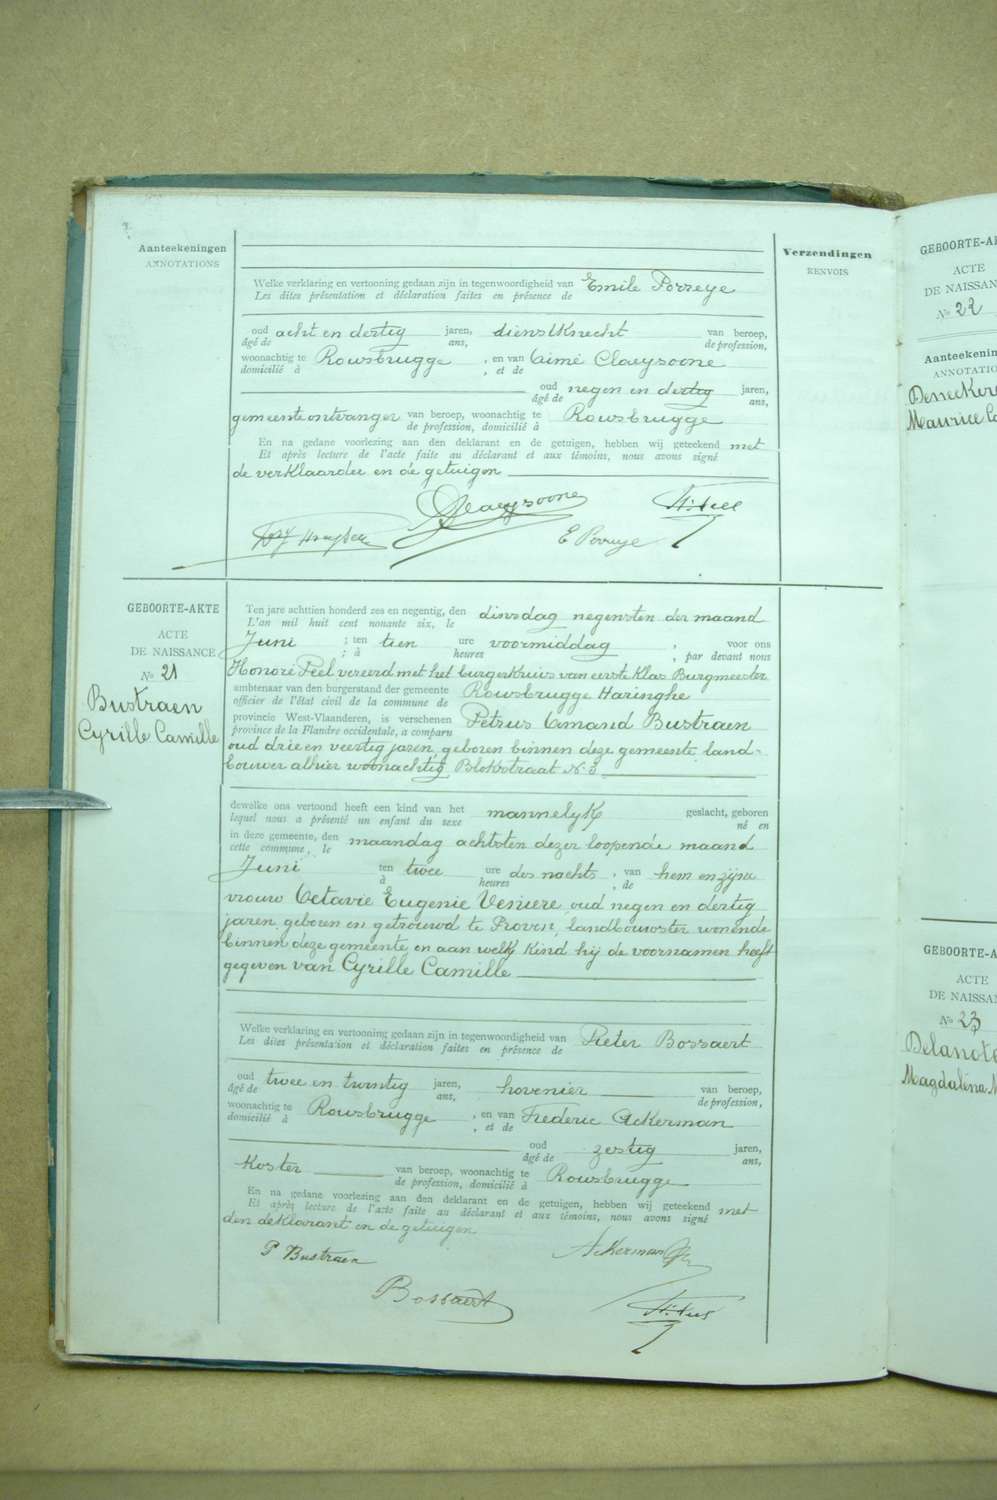 Aanteekeningen
ANNOTATIONS
Verzendingen
RENVOIS
Welke verklaring en vertooning gedaan zijn in tegenwoordigheid van Emile Porreye
Les dites présentation et déclaration faites en présence de
oud acht en dertig jaren, dienstknecht van beroep,
âgé de ans, de profession,
woonachtig te Rousbrugge , en van Aimé Claeysoone
domicilié à , et de
oud negen en dertig jaren,
âgé de ans,
gemeenteontvanger van beroep, woonachtig te Rousbrugge
de profession, domicilié à
En na gedane voorlezing aan den deklarant en de getuigen, hebben wij geteekend met
Et après lecture de l'acte faite au déclarant et aux témoins, nous avons signé
de verklaarder en de getuigen
Claeysoone
E Porreye
GEBOORTE-AKTE
ACTE
DE NAISSANCE
No 21
Bustraen
Cyrille Camille
Ten jare achttien honderd zes en negentig, den dinsdag negensten der maand
L'an mil huit cent nonante six, le
Juni ; ten tien ure voormiddag , voor ons
; à heures , par devant nous
Honoré Peel vereerd met het burgerkruis van eerste klas Burgmeester
ambtenaar van den burgerstand der gemeente Rousbrugge Haringhe
officier de l'état civil de la commune de
provincie West-Vlaanderen, is verschenen Petrus Amand Bustraen
province de la Flandre occidentale, a comparu
oud drie en veertig jaren, geboren binnen deze gemeente, land-
bouwer alhier woonachtig Blokstraat No 3
dewelke ons vertoond heeft een kind van het mannelyk geslacht, geboren
lequel nous a présenté un enfant du sexe né en
in deze gemeente, den maandag achtsten dezer loopende maand
cette commune, le
Juni ten twee ure des nachts , van hem en zijne
à heures , de
vrouw Octavie Eugenie Veniere, oud negen en dertig
jaren, geboren en getrouwd te Proven, landbouwster wonende
binnen deze gemeente, en aan welk kind hij de voornamen heeft
gegeven van Cyrille Camille
Welke verklaring en vertooning gedaan zijn in tegenwoordigheid van Pieter Bossaert
Les dites présentation et déclaration faites en présence de
oud twee en twintig jaren, hovenier van beroep,
âgé de ans, de profession,
woonachtig te Rousbrugge , en van Frederic Ackerman
domicilié à , et de
oud zestig jaren,
âgé de ans,
Koster van beroep, woonachtig te Rousbrugge
de profession, domicilié à
En na gedane voorlezing aan den deklarant en de getuigen, hebben wij geteekend met
Et après lecture de l'acte faite au déclarant et aux témoins, nous avons signé
den deklarant en de getuigen
P Bustraen
Ackerman
Bossaert
GEBOORTE-AK
ACTE
DE NAISSANC
No 22
Aanteekenin
ANNOTATIO
Maurice
GEBOORTE-A
ACTE
DE NAISSAN
No 23
Magdalena M